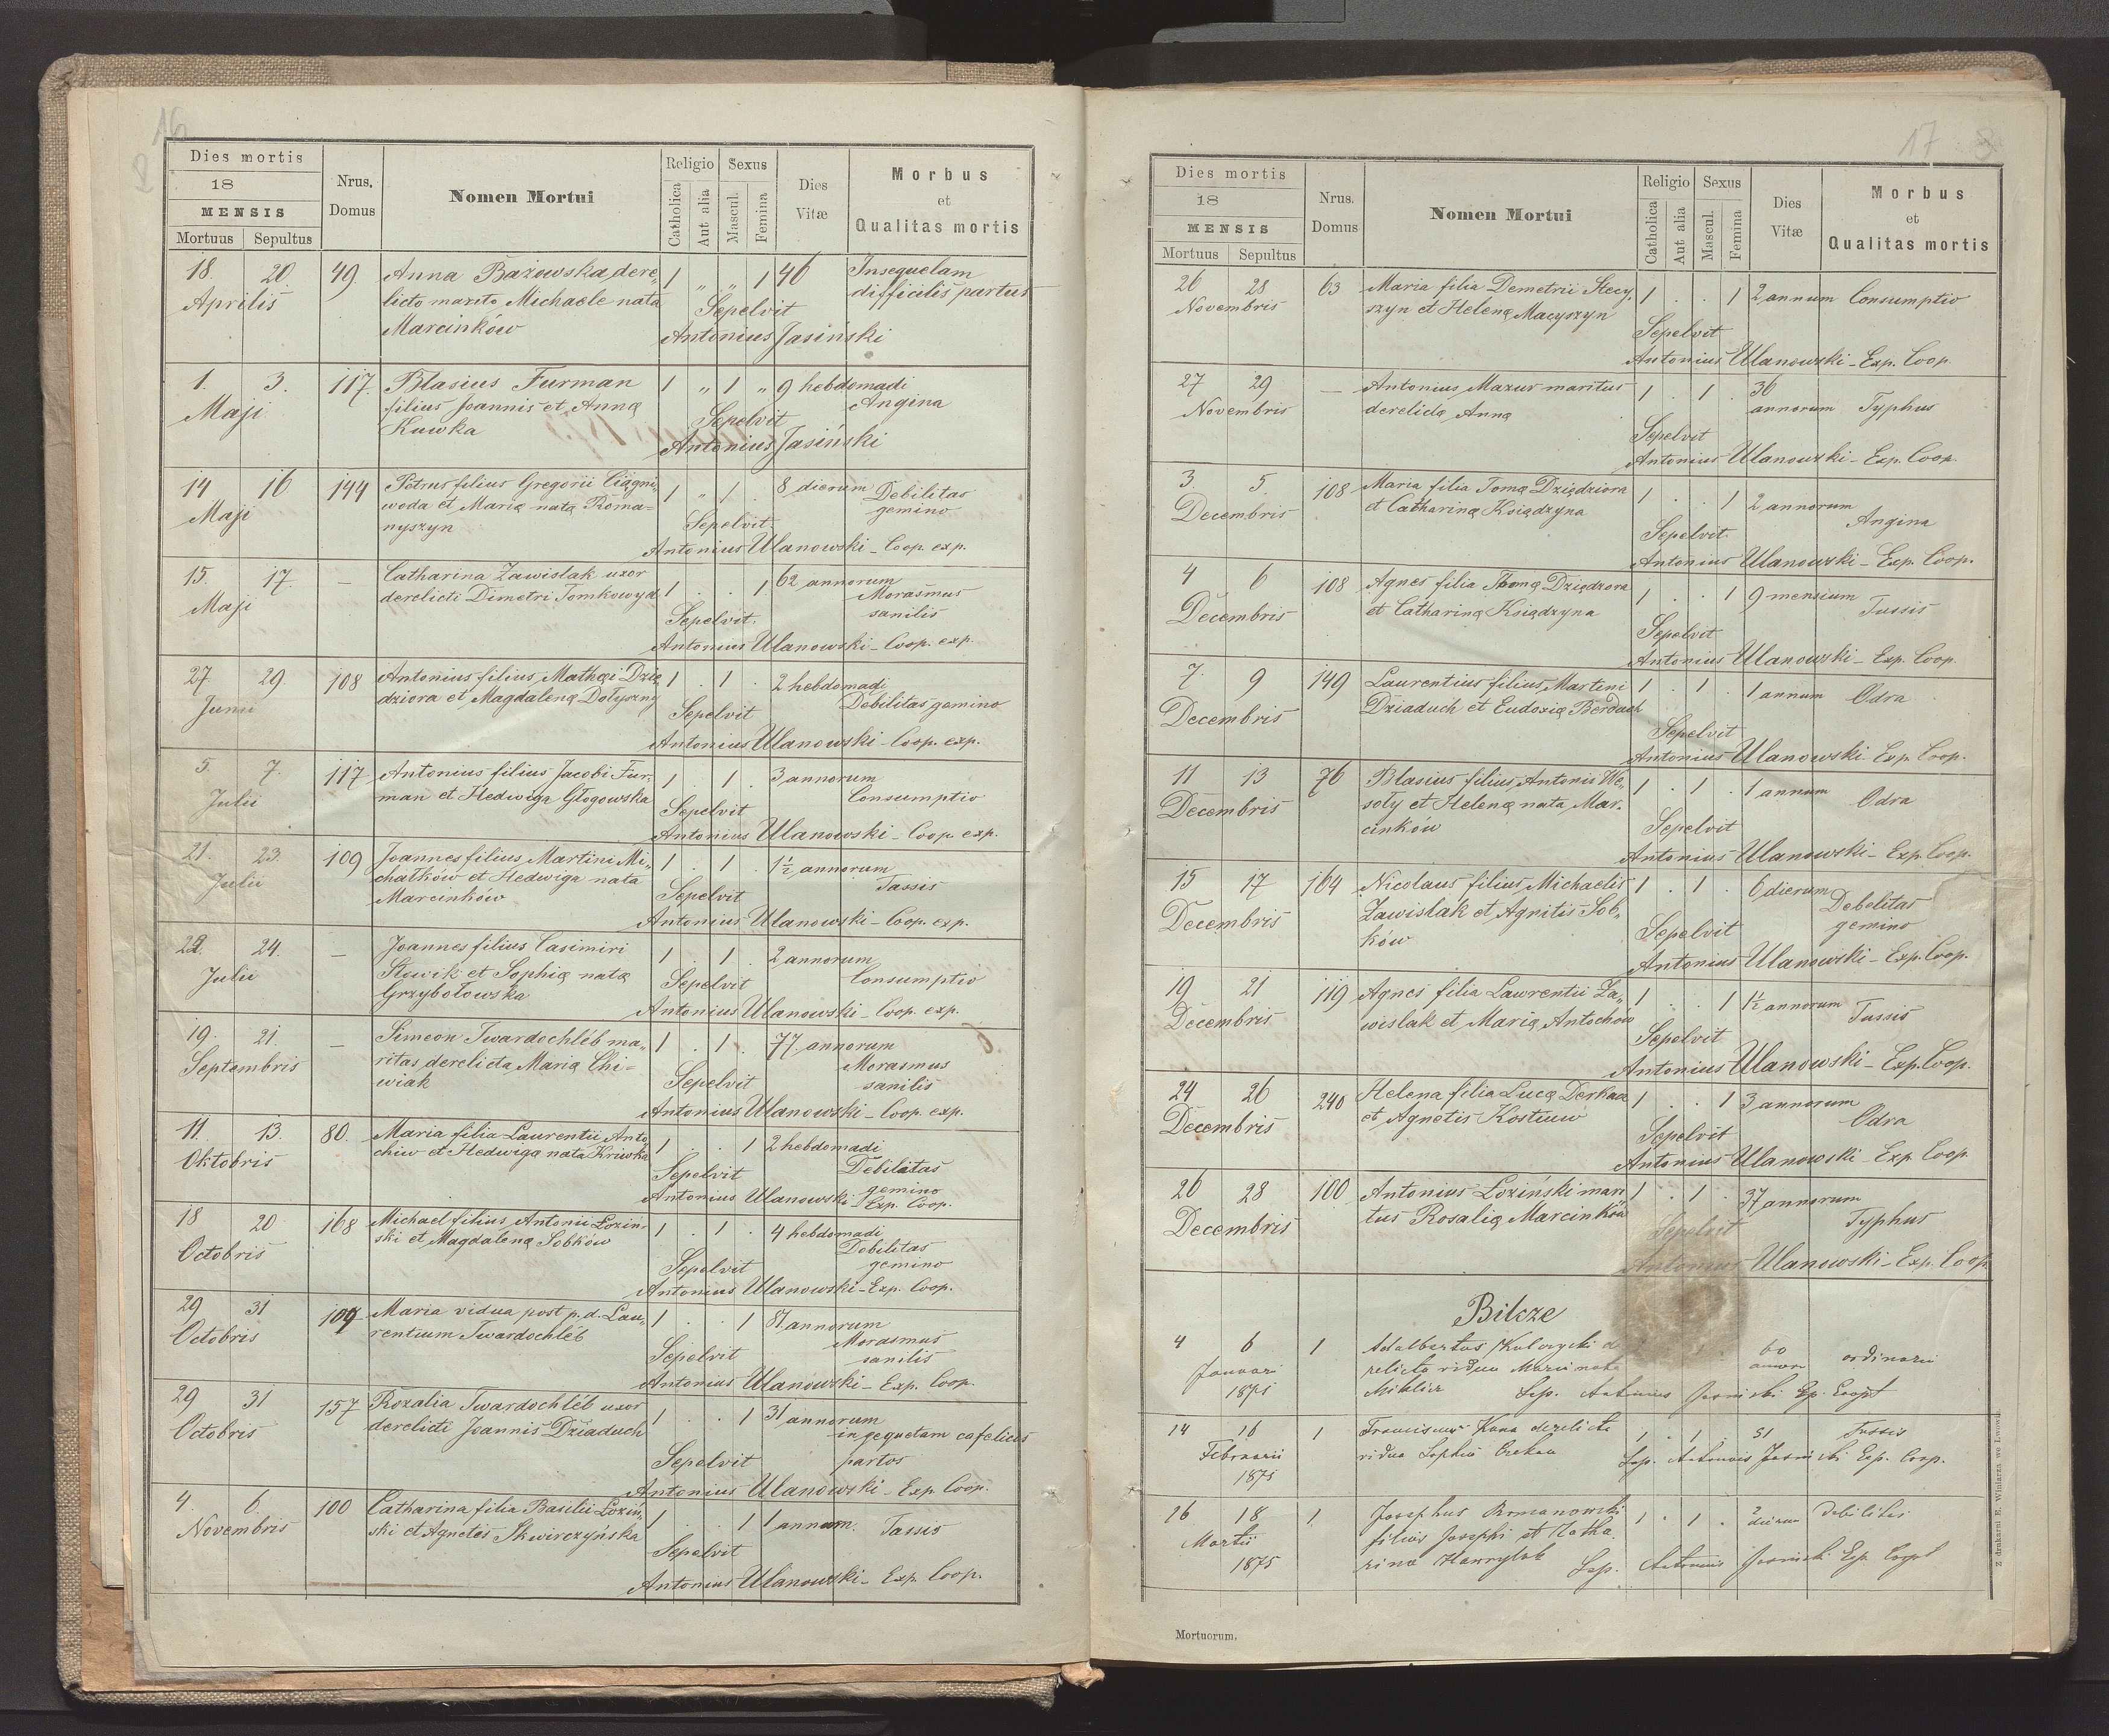 16
2
Dies mortis
18
MENSIS
Mortuus Sepultus
Nrus. Domus
Nomen Mortui
Religio
Catholica
Aut alia
Sexus
Mascul.
Femina
Dies Vitæ
Morbus
et
Qualitas mortis
18. 20. 49. Anna Bazowska dere„ 1 „ „ 1 46 Insequelam
Aprilis licto marito Michaele nata difficilis partus
Marcinków Sepelvit
Antonius Jasiński
1. 3. 117. Blasius Furman 1 „ 1 „ 9 hebdomadi
Maji filius Joannis et Annę Angina
Kuwka Sepelvit
Antonius Jasiński
14 16 144 Petrus filius Gregorii Ciągni„ 1 „ 1 . 8 dierum Debilitas
Maji woda et Marię natę Roma= gemino
nyszyn Sepelvit
Antonius Ulanowski – Coop. exp.
15. 17. — Catharina Zawislak uxor 1 . . 1 62 annorum
Maji derelicti Dimetri Tomkowyd Morasmus
sanilis
Sepelvit.
Antonius Ulanowski – Coop. exp.
27. 29. 108 Antonius filius Mathęi Dzię 1 . 1 . 2 hebdomadi
Junii dziora et Magdalenę Dotyszny Debilitas gemino
Sepelvit
Antonius Ulanowski – Coop. exp.
5. 7. 117 Antonius filius Jacobi Fur„ 1 . 1 . 3 annorum
Julii man et Hedwiga Głogowska Consumptio
Sepelvit
Antonius Ulanowski – Coop. exp.
21. 23. 109 Joannes filius Martini Mi„ 1 . 1 . 1½ annorum
Julii chatków et Hedwiga nata Tassis
Marcinków Sepelvit
Antonius Ulanowski – Coop. exp.
22. 24. — Joannes filius Casimiri 1 . 1 . 2 annorum
Julii Słowik et Sophię natę Consumptio
Grzybołowska Sepelvit
Antonius Ulanowski – Coop. exp.
19. 21. — Simeon Twardochléb ma„ 1 . 1 . 77. annorum
Septembris ritas derelicta Marię Chi= Morasmus
wiak sanilis
Sepelvit
Antonius Ulanowski – Coop. exp.
11. 13. 80. Maria filia Laurentii Anto„ 1 . . 1 2 hebdomadi
Oktobris chiw et Hedwigę nata Kriwka Debilatas
gemino
Sepelvit
Antonius Ulanowski Exp. Coop.
18 20 168 Michael filius Antonii Łozin„ 1 . 1 . 4 hebdomadi
Octobris ski et Magdalenę Sobków Debilitas
gemino
Sepelvit
Antonius Ulanowski – Exp. Coop.
29 31 Maria vidua post p. d. Lau„ 1 . . 1 annorum
Octobris rentium Twardochléb Morasmus
sanilis
Sepelvit
Antonius Ulanowski – Exp. Coop.
29 31 157 Rozalia Twardochléb uxor 1 . . 1 31 annorum
Octobris derelicti Joannis Dziaduch
partos
Sepelvit
Antonius Ulanowski – Exp. Coop.
4. 6. 100 Catharina filia Basilii Łoziń„ 1 . . 1 1 annum. Tassis
Novembris ski et Agnetes Skwirczyńska
Sepelvit
Antonius Ulanowski – Exp. Coop.
17 3
Dies mortis
18
MENSIS
Mortuus Sepultus
Nrus. Domus
Nomen Mortui
Religio
Catholica
Aut alia
Sexus
Mascul.
Femina
Dies Vitæ
Morbus
et
Qualitas mortis
26 28 63 Maria filia Demetrii Stecy„ 1 . . 1 2 annum Consumptio
Novembris szyn et Helenę Macyszyn
Sepelvit
Antonius Ulanowski – Exp. Coop
27 29 — Antonius Mazur maritus 1 . 1 . 36
Novembris derelictę Annę annorum Typhus
Sepelvit
Antonius Ulanowski – Exp. Coop.
3. 5. 108 Maria filia Tomę Dziędziora 1 . . 1 2 annorum
Decembris et Catharinę Księdzyna Angina
Sepelvit.
Antonius Ulanowski – Exp. Coop.
4 6 108 Agnes filia Thomę Dziędzora 1 . . 1 9 mensium
Decembris et Catharinę Księdzyna Tussis
Sepelvit
Antonius Ulanowski – Exp. Coop.
7. 9 149 Laurentius filius Martini 1 . 1 . 1 annum Odra
Decembris Dziaduch et Eudoxię Berduch
Sepelvit
Antonius Ulanowski – Exp. Coop.
11 13 76 Blasius filius Antonis We„ 1 . 1 . 1 annum
Decembris soły et Helenę nata Mar„ Odra
cinków Sepelvit
Antonius Ulanowski – Exp. Coop.
15 17 164 Nicolaus filius Michaelis 1 . 1 . 6 dierum
Decembris Zawislak et Agnitis Sob„ Debelitas
ków gemino
Sepelvit
Antonius Ulanowski – Exp. Coop.
19 21 119 Agnes filia Lawrentii Za„ 1 . . 1 1½ annorum
Decembris wislak et Marię Antochów Tussis
Sepelvit
Antonius Ulanowski – Exp. Coop.
24 26 240 Helena filia Lucę Derkacz 1 . . 1 3 annorum
Decembris et Agnetis Kostiuw Odra
Sepelvit
Antonius Ulanowski – Exp. Coop
26 28 100 Antonius Łoziński mari 1 . 1 . 37 annorum
Decembris tus Rosalię Marcinków Typhus
Sepelvit
Antonius Ulanowski – Exp. Coop
Bilcze
4 6 1 Adalbertus Kulczycki de 60 ordinarii
Januari relicta vidua Maria nata
1875 Sep. Antonius Jasinski Exp. Coopt
14 16 1 Franciscus derelicta 1 . 1 . 51 Tussis
Februarii vidua Sophia Sep. Antonius Jasinski Exp. Coop.
1875
26 18 1. Josephus Romanowski 1 . 1 . 2 dierum Debilitas
Martii filius Josephi et Katha
1875 rina Hawrylak Sep. Antonius Jasinski Exp. Coopt
Mortuorum.
Z drukarni E. Winiarza we Lwowie.